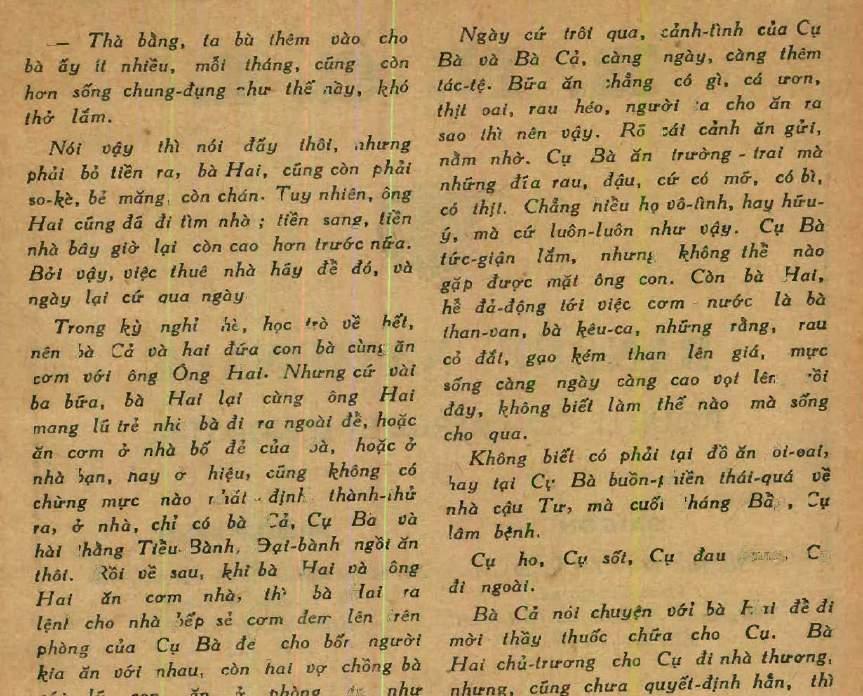 — Thà bằng, ta bù thêm vào cho
bà ấy ít nhiều, mỗi tháng, cũng còn
hơn sống chung-đụng như thế nầy, khó
thở lắm.
Nói vậy thì nói đấy thôi, nhưng
phải bỏ tiền ra, bà Hai, cũng còn phải
so-kè, bẻ măng, còn chán. Tuy nhiên, ông
Hai cũng đã đi tìm nhà ; tiền sang, tiền
nhà bây giờ lại còn cao hơn trước nữa.
Bởi vậy, việc thuê nhà hãy để đó, và
ngày lại cứ qua ngày
Trong kỳ nghỉ hè, học trò về hết,
nên bà Cả và hai đứa con bà cùng ăn
cơm với ông Ông Hai. Nhưng cứ vài
ba bữa, bà Hai lại cùng ông Hai
mang lũ trẻ nhỉ bà đi ra ngoài để, hoặc
ăn cơm ở nhà bố đẻ của bà, hoặc ở
nhà bạn, hay ở hiệu, cũng không có
chừng mực nào nhất-định thành-thử
ra, ở nhà, chỉ có bà Cả, Cụ Bà và
hài thằng Tiểu-Bành, Đại-bành ngồi ăn
thôi. Rồi về sau, khi bà Hai và ông
Hai ăn cơm nhà, thì bà Hai ra
lệnh cho nhà bếp sẻ cơm đem lên trên
phòng của Cụ Bà để cho bốn người
kia ăn với nhau, còn hai vợ chồng bà
lũ con ăn ở phòng như
Ngày cứ trôi qua, cảnh-tình của Cụ
Bà và Bà Cả, càng ngày, càng thêm
tác-tệ. Bữa ăn chẳng có gì, cá ươn,
thịt oai, rau héo, người ta cho ăn ra
sao thì nên vậy. Rõ cái cảnh ăn gửi,
nằm nhờ. Cụ Bà ăn trường-trai mà
những đĩa rau, đậu, cứ có mỡ, có bì,
có thịt. Chẳng hiểu họ vô-tình, hay hữu-
ý, mà cứ luôn-luôn như vậy. Cụ Bà
tức-giận lắm, nhưng không thể nào
gặp được mặt ông con. Còn bà Hai,
hễ đả-động tới việc cơm nước là bà
than-van, bà kêu-ca, những rằng, rau
cỏ đắt, gạo kém than lên giá, mực
sống càng ngày càng cao vọt lên rồi
đây, không biết làm thế nào mà sống
cho qua.
Không biết có phải tại đồ ăn oi-oai,
hay tại Cụ Bà buồn-phiền thái-quá về
nhà cậu Tư, mà cuối tháng Bảy, Cụ
lâm bệnh.
Cụ ho, Cụ sốt, Cụ đau
đi ngoài.
Bà Cả nói chuyện với bà Hai để đi
mời thầy thuốc chữa cho Cụ. Bà
Hai chủ-trương cho Cụ đi nhà thương,
nhưng, cũng chưa quyết-định hẳn, thì